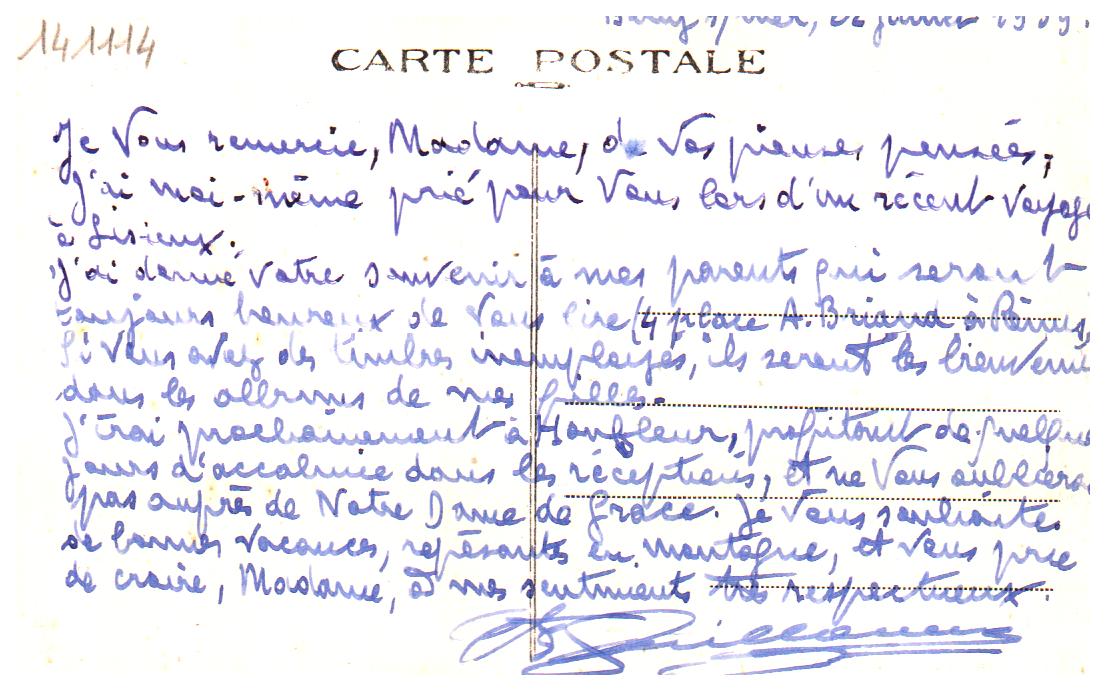 141114
s/mer, 22 juillet 1959.
CARTE POSTALE
Je Vous remercie, Madame, de Vos pieuses pensées,
J'ai moi-même prié pour Vous lors d'un récent Voyage
à Lisieux.
J'ai donné Votre souvenir à mes parents qui seront
toujours heureux de Vous lire (4 place A. Briand à
Si Vous avez des timbres inemployés, ils seront les bienvenus
dans les albums de mes filles.
J'irai prochainement à Honfleur, profitant de quelques
jours d'accalmie dans les réceptions, et ne Vous oublierai
pas auprès de Notre Dame de Grâce. Je Vous souhaite
de bonnes vacances, reposantes en montagne, et Vous prie
de croire, Madame, à mes sentiments très respectueux.